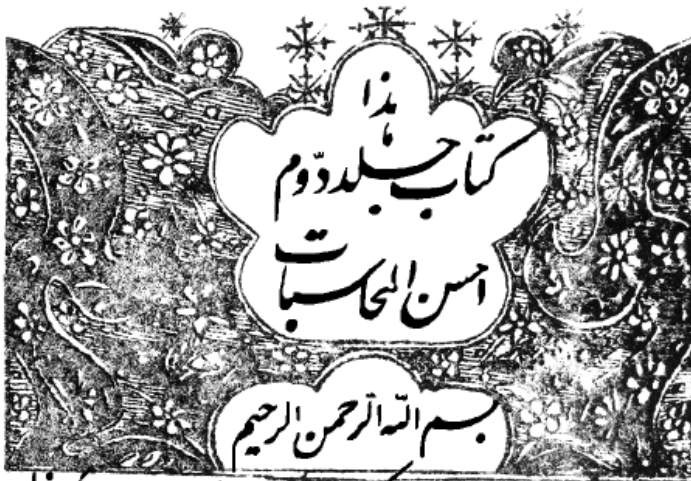 هذا
کتاب جلد دوّم
احسن المحاسبات
بسم الله الرّحمن الرحیم